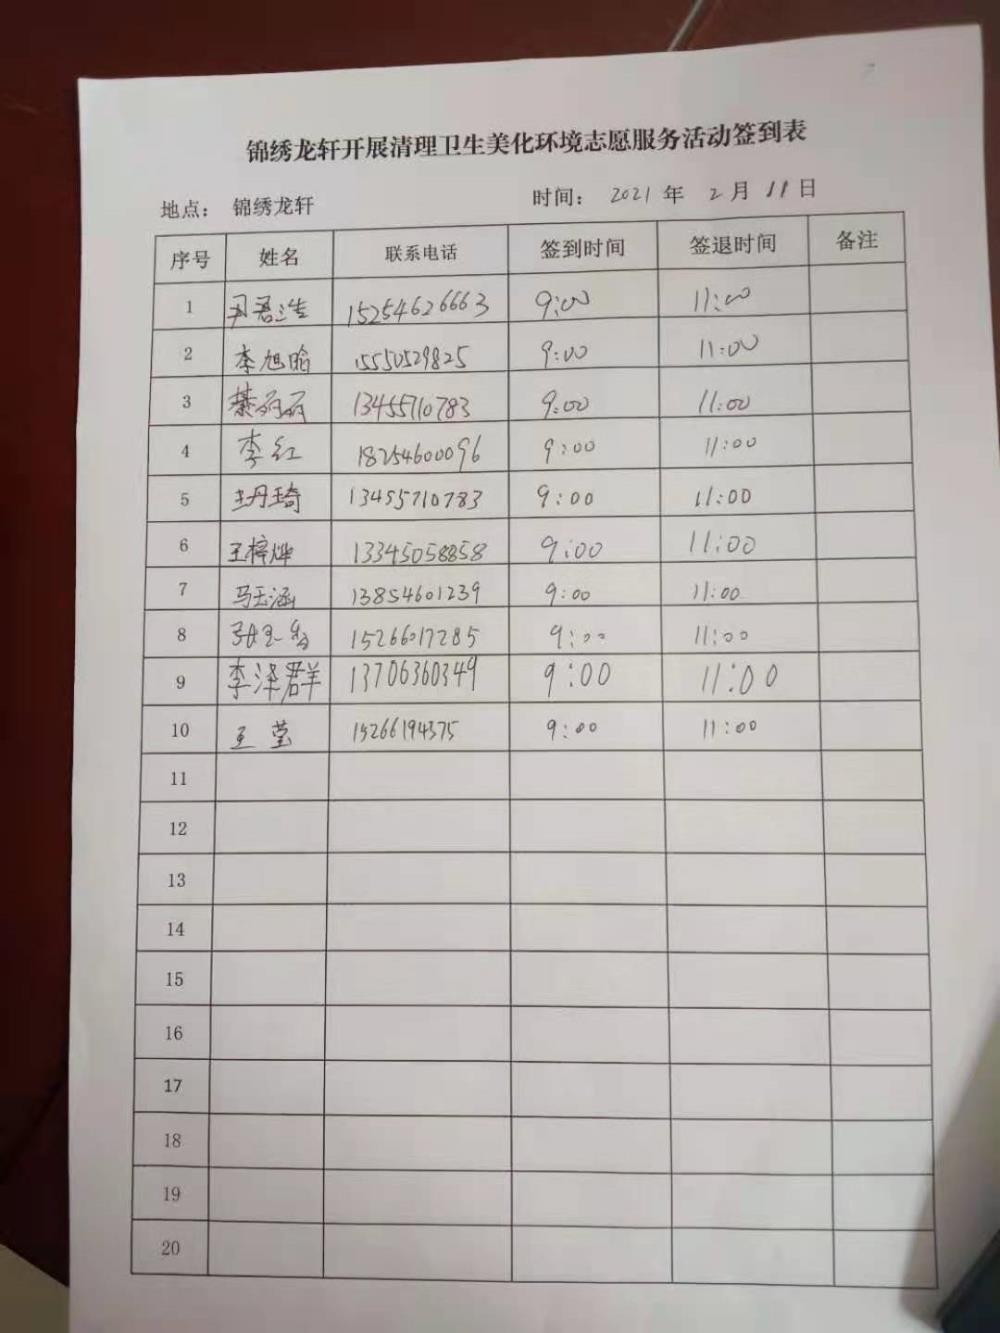 锦绣龙轩开展清理卫生美化环境志愿服务活动签到表
地点： 锦绣龙轩 时间： 2021 年 2 月 18 日
序号 姓名 联系电话 签到时间 签退时间 备注
1 15254626663 9:00 11:00
2 李旭晗 15550529825 9:00 11:00
3 綦丽丽 13455710783 9:00 11:00
4 李红 18254600096 9:00 11:00
5 王丹琦 13455710783 9:00 11:00
6 王梓烨 13345058858 9:00 11:00
7 马玉涵 13854601239 9:00 11:00
8 15266017285 9:00 11:00
9 李泽群 13706360349 9:00 11:00
10 王莹 15266194375 9:00 11:00
11
12
13
14
15
16
17
18
19
20